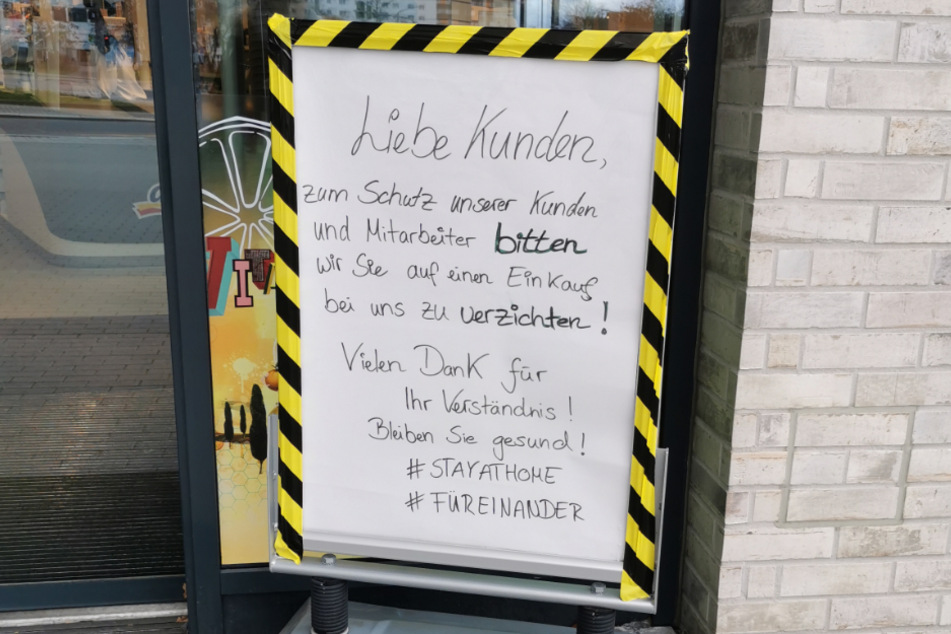 Liebe Kunden,
zum Schutz unserer Kunden
und Mitarbeiter bitten
wir Sie auf einen Einkauf
bei uns zu verzichten!
Vielen Dank für
Ihr Verständnis!
Bleiben Sie gesund!
#STAYATHOME
#FÜREINANDER